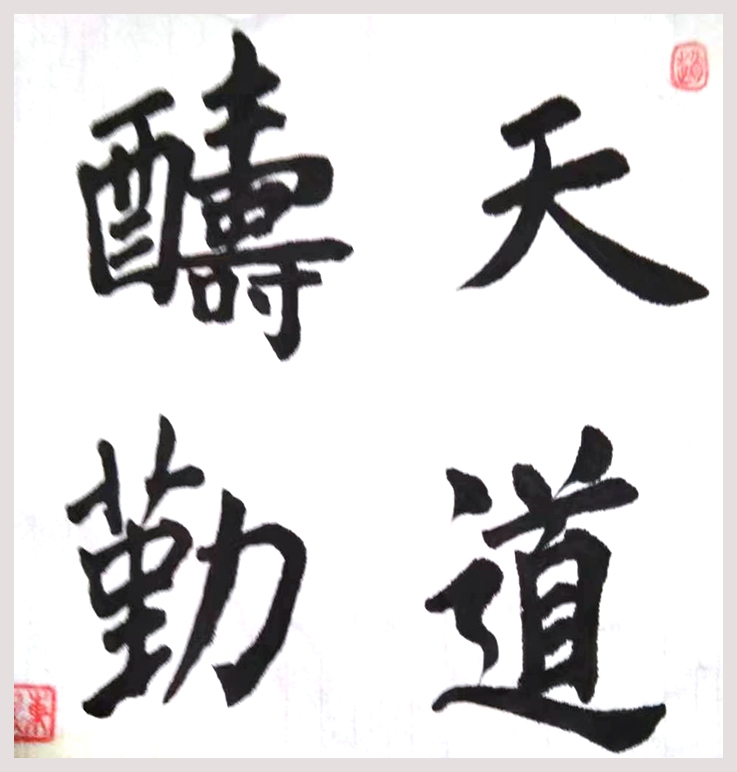 天道
醻勤